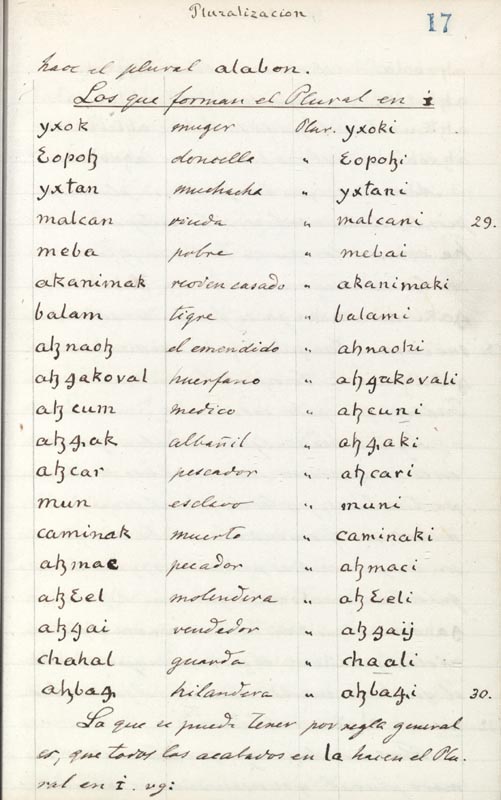 Pluralizacion
17
hace el plural alabon.
Los que forman el Plural en i
yxok muger Plur. yxoki
Ɛopoꜩ doncella " Ɛopoꜩi
yxtan muchacha " yxtani
malcan viuda " malcani 29.
meba pobre " mebai
akanimak recien casado " akanimaki
balam tigre " balami
aꜩnaoꜩ el " ahnaoꜩi
aꜩꜭakoval huerfano " aꜩꜭakovali
aꜩcum medico " aꜩcuni
aꜩꜭak albañil " aꜩꜭaki
aꜩcar pescador " aꜩcari
mun esclavo " muni
caminak muerto " caminaki
aꜩmac pecador " aꜩmaci
aꜩƐel molendera " aꜩƐeli
aꜩꜭai vendedor " aꜩꜭaij
chahal guarda " chaali
aꜩbaꜭ hilandera " aꜩbaꜭi 30.
Lo que se puede tener por regla general
es, que todos los acabados en la hacen el Plu-
ral en i. vg: